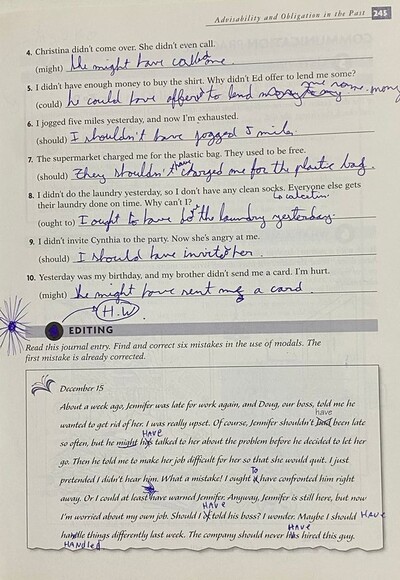 Advisability and Obligation in the Past 245
4. Christina didn't come over. She didn't even call.
(might) He might have called me.
5. I didn't have enough money to buy the shirt. Why didn't Ed offer to lend me some?
(could) he could have offered to lend me some money
6. I jogged five miles yesterday, and now I'm exhausted.
(should) I shouldn't have jogged 5 miles.
7. The supermarket charged me for the plastic bag. They used to be free.
(should) They shouldn't have charged me for the plastic bag.
8. I didn't do the laundry yesterday, so I don't have any clean socks. Everyone else gets
their laundry done on time. Why can't I?
(ought to) I ought to have the laundry yesterday.
9. I didn't invite Cynthia to the party. Now she's angry at me.
(should) I should have invited her.
10. Yesterday was my birthday, and my brother didn't send me a card. I'm hurt.
(might) he might have sent me a card
H.W
EDITING
Read this journal entry. Find and correct six mistakes in the use of modals. The
first mistake is already corrected.
December 15
About a week ago, Jennifer was late for work again, and Doug, our boss, told me he
have
wanted to get rid of her. I was really upset. Of course, Jennifer shouldn't had been late
HAVE
so often, but he might has talked to her about the problem before he decided to let her
go. Then he told me to make her job difficult for her so that she would quit. I just
pretended I didn't hear him. What a mistake! I ought TO have confronted him right
away. Or I could at least have warned Jennifer. Anyway, Jennifer is still here, but now
HAVE
I'm worried about my own job. Should I of told his boss? I wonder. Maybe I should HAVE
HAVE
handle things differently last week. The company should never has hired this guy.
HANDLED